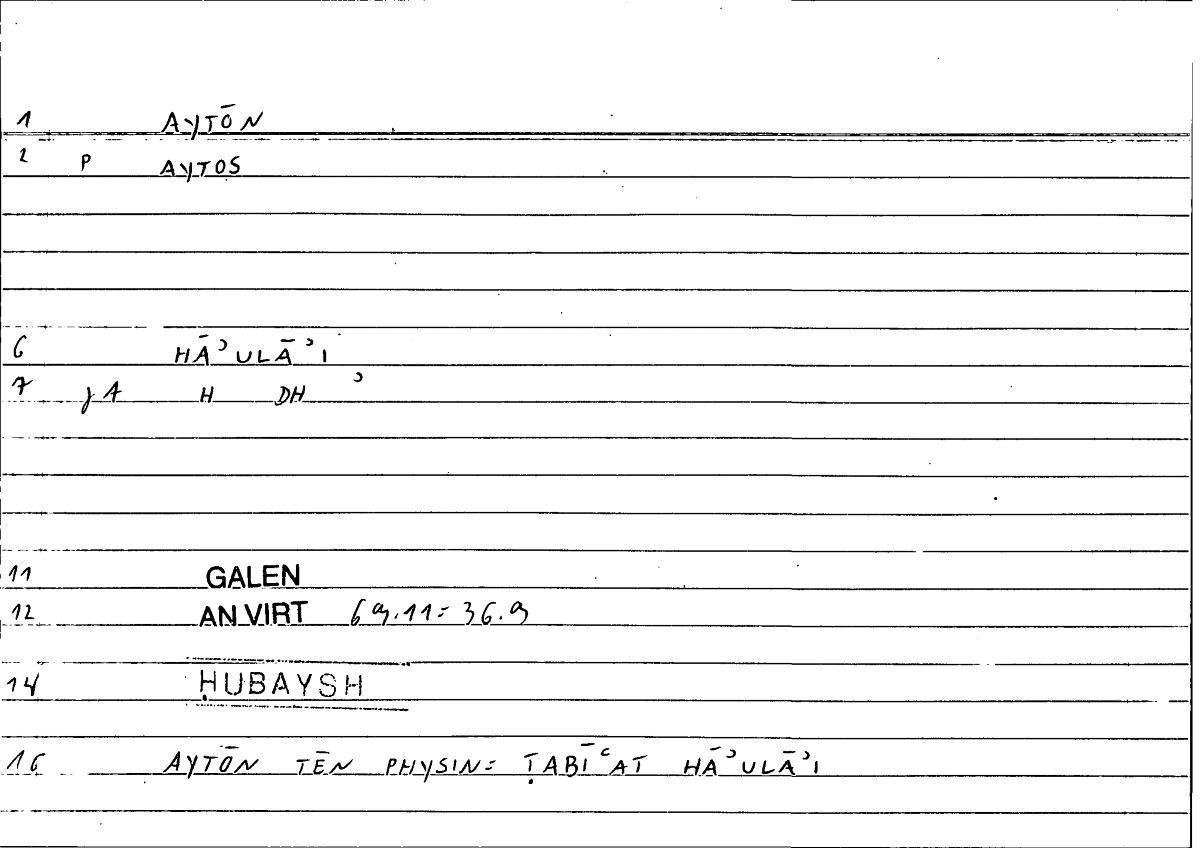 1 AYTŌN
2 P AYTOS
6 HĀʾULĀʾI
7 jA H DH ʾ
11 GALEN
12 AN VIRT 69.11=36.9
14 ḤUBAYSH
16 AYTŌN TĒN PHYSIN= ṬABĪʿAT HĀʾULĀʾI